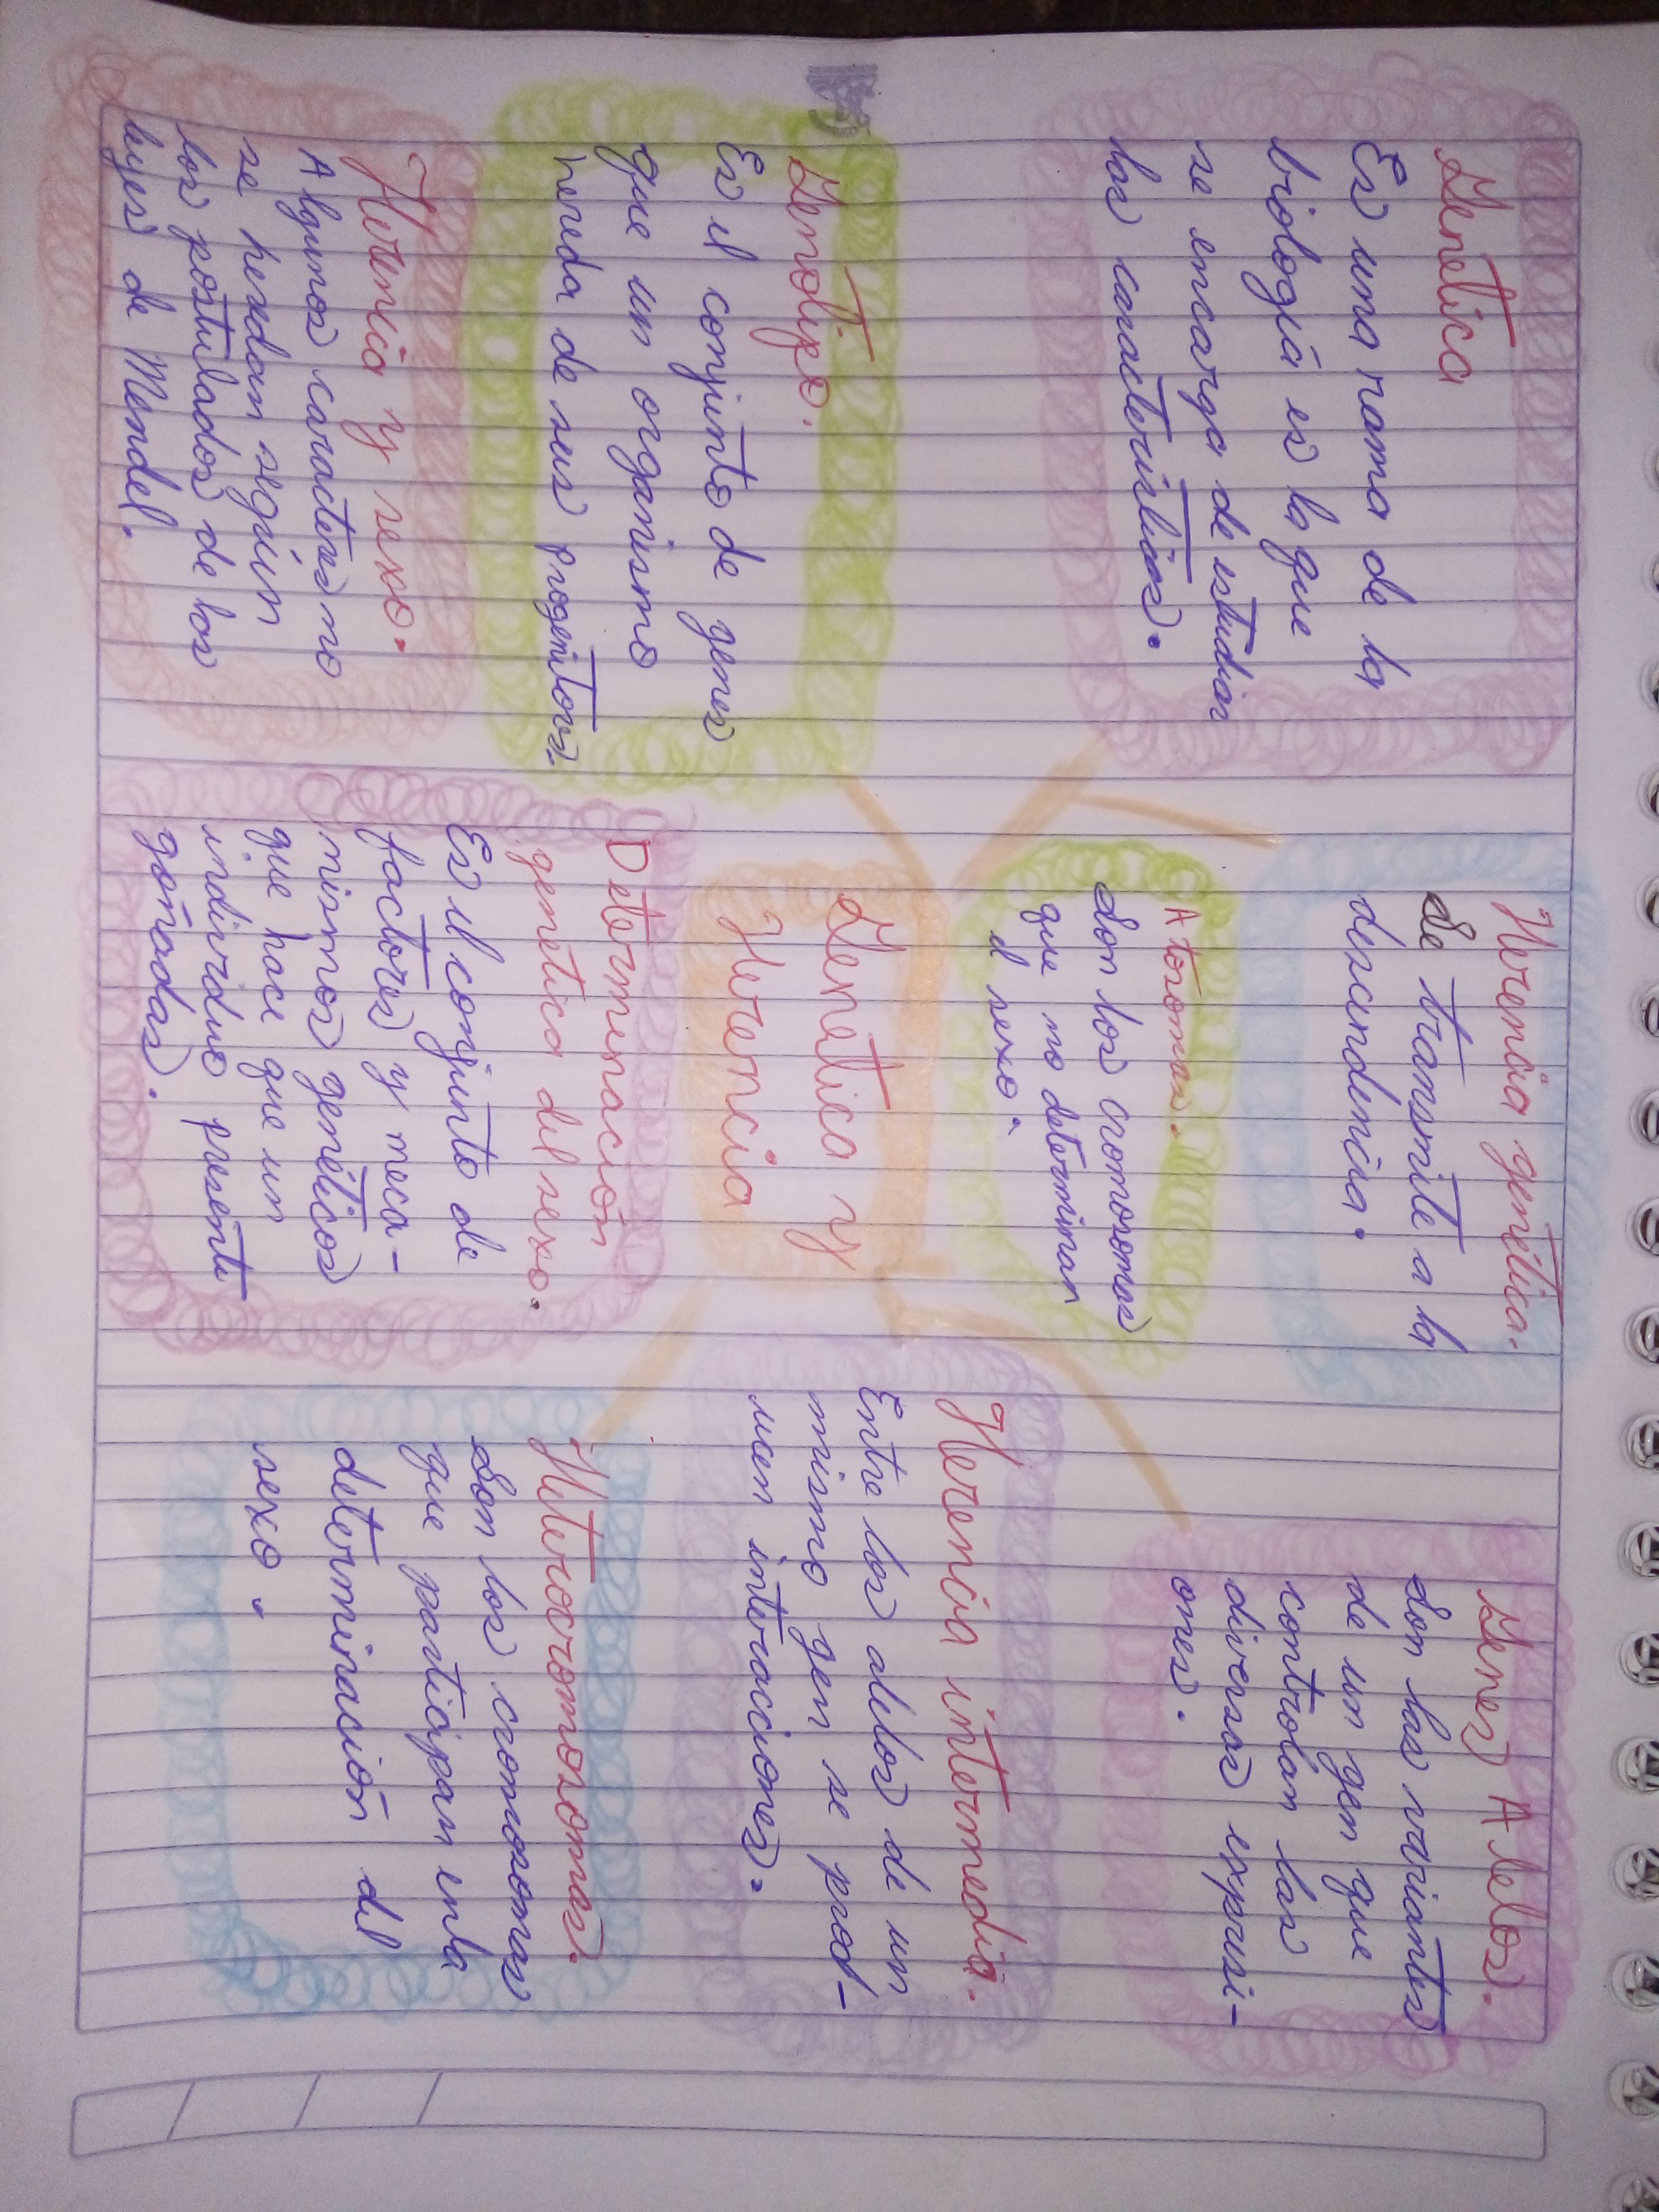 Genetica
Es una rama de la
biología es la que
se encarga de estudiar
las caracteristicas.
Herencia genética.
Se transmite a la
descendencia.
Genes Alelos.
Son las variantes
de un gen que
controlan las
diversas expresi-
ones.
Atosomas.
Son los cromosomas
que no determinan
el sexo.
Genotipo.
Es el conjunto de genes
que un organismo
hereda de sus progenitores.
Genetica y
Herencia
Herencia intermedia.
Entre los alelos de un
mismo gen se prod-
ucen interacciones.
Herencia y sexo.
Algunos caracteres no
se heredan según
los postulados de las
leyes de Mendel.
Determinación
genetica del sexo.
Es el conjunto de
factores y meca-
nismos genéticos
que hace que un
individuo presente
gónadas.
Heterocromosomas.
Son los cromosomas
que participan en la
determinación del
sexo.